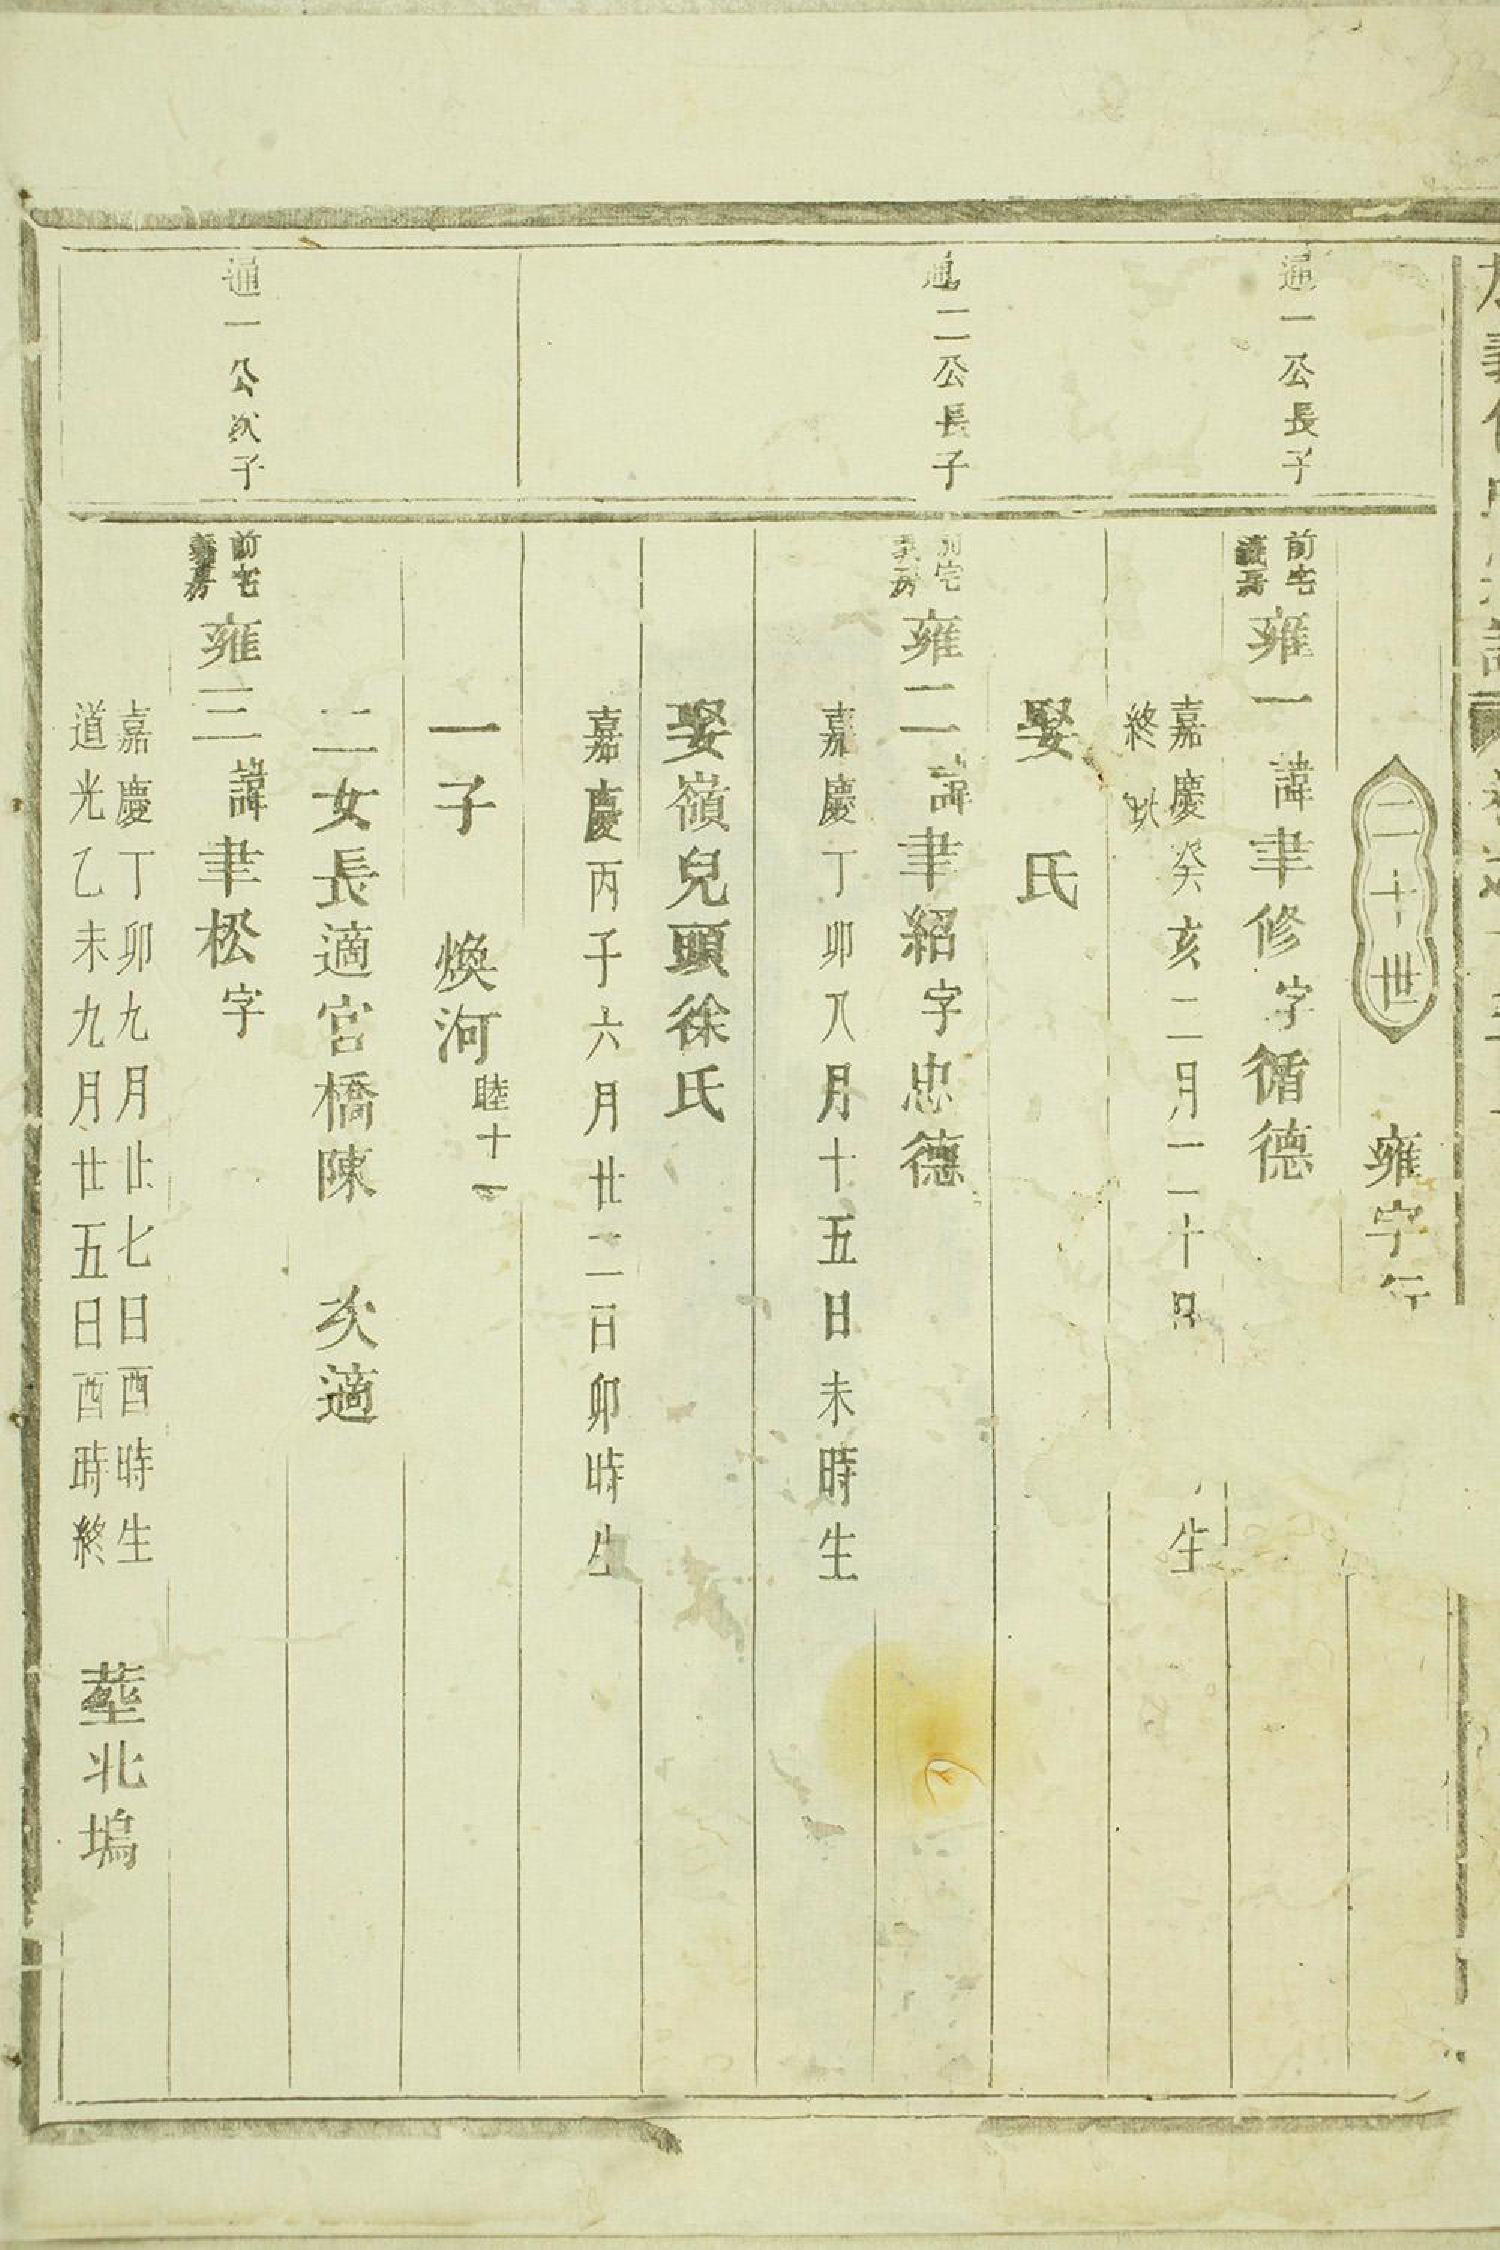 二十世 雍字行
通一公長子
前宅義房 雍一 諱聿修 字循德
嘉慶癸亥二月二十日 生
終 坎
娶 氏
通二公長子
前宅義房 雍二 諱聿紹 字忠德
嘉慶丁卯八月十五日未時生
娶嶺兒頭徐氏
嘉慶丙子六月廿二日卯時生
一子 煥河 睦十一
二女長適宮橋陳 次適
通一公次子
前宅義房 雍三 諱聿松 字
嘉慶丁卯九月廿七日酉時生
道光乙未九月廿五日酉時終
塟北塢